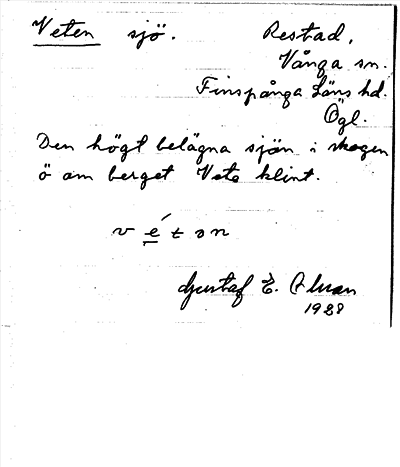 Veten sjö. Restad,
Vånga sn.
Finspånga Läns hd.
Ögl.
Den högt belägna sjön i skogen
ö om berget Veta klint.
v é t ə n
Gustaf E.
1928